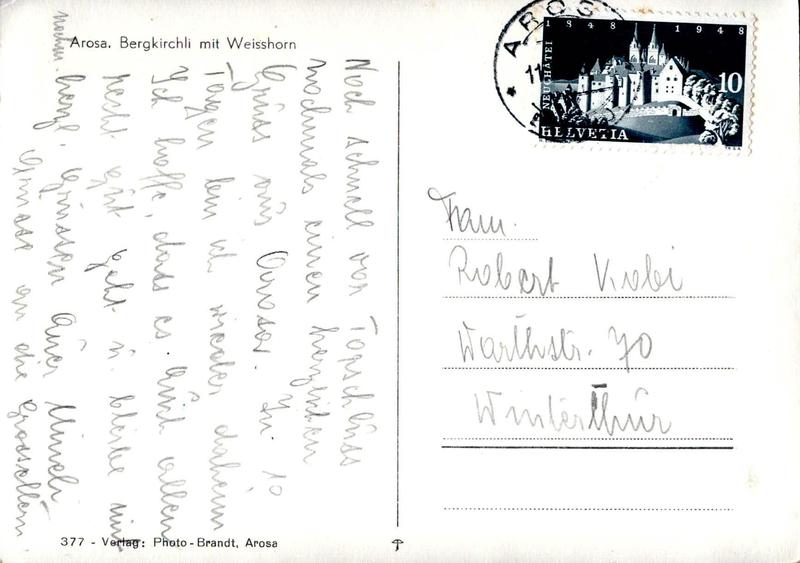 Arosa. Bergkirchli mit Weisshorn
Noch schnell vor Torschluss
nochmals einen herzlichen
Gruss aus Arosa. In 10
Tagen bin ich wieder daheim
Ich hoffe, dass es Euch allen
recht gut geht u. bleibe mit
herzl. Grüssen Euer
Grüsse an die Grosseltern.
377 - Verlag: Photo-Brandt, Arosa
AROS
11
1848 1948
NEUCHÂTEL
10
HELVETIA
Fam.
Robert Kobi
Warthstr. 70
Winterthur